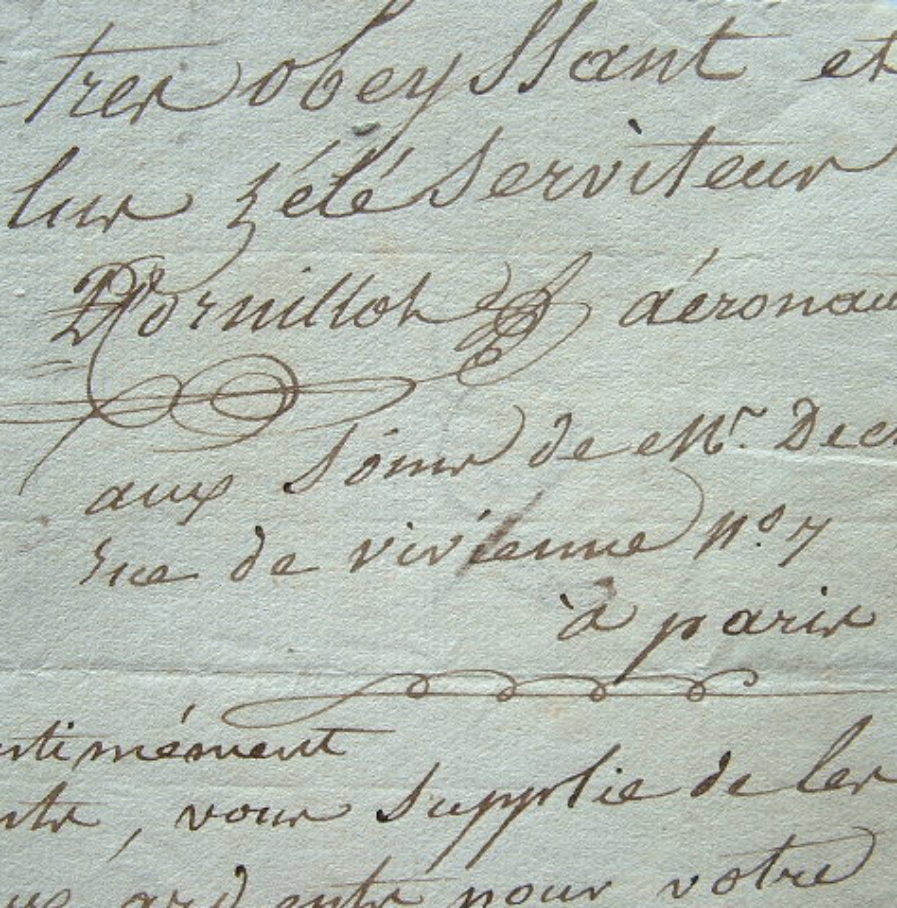 tres obeyssant et
plus zélé serviteur
D'Cornillot aéronau
aux soins de Mr. Dec
rue de vivienne No. 7
à paris
ntimément
nts, vous supplie de les
us ardents pour votre